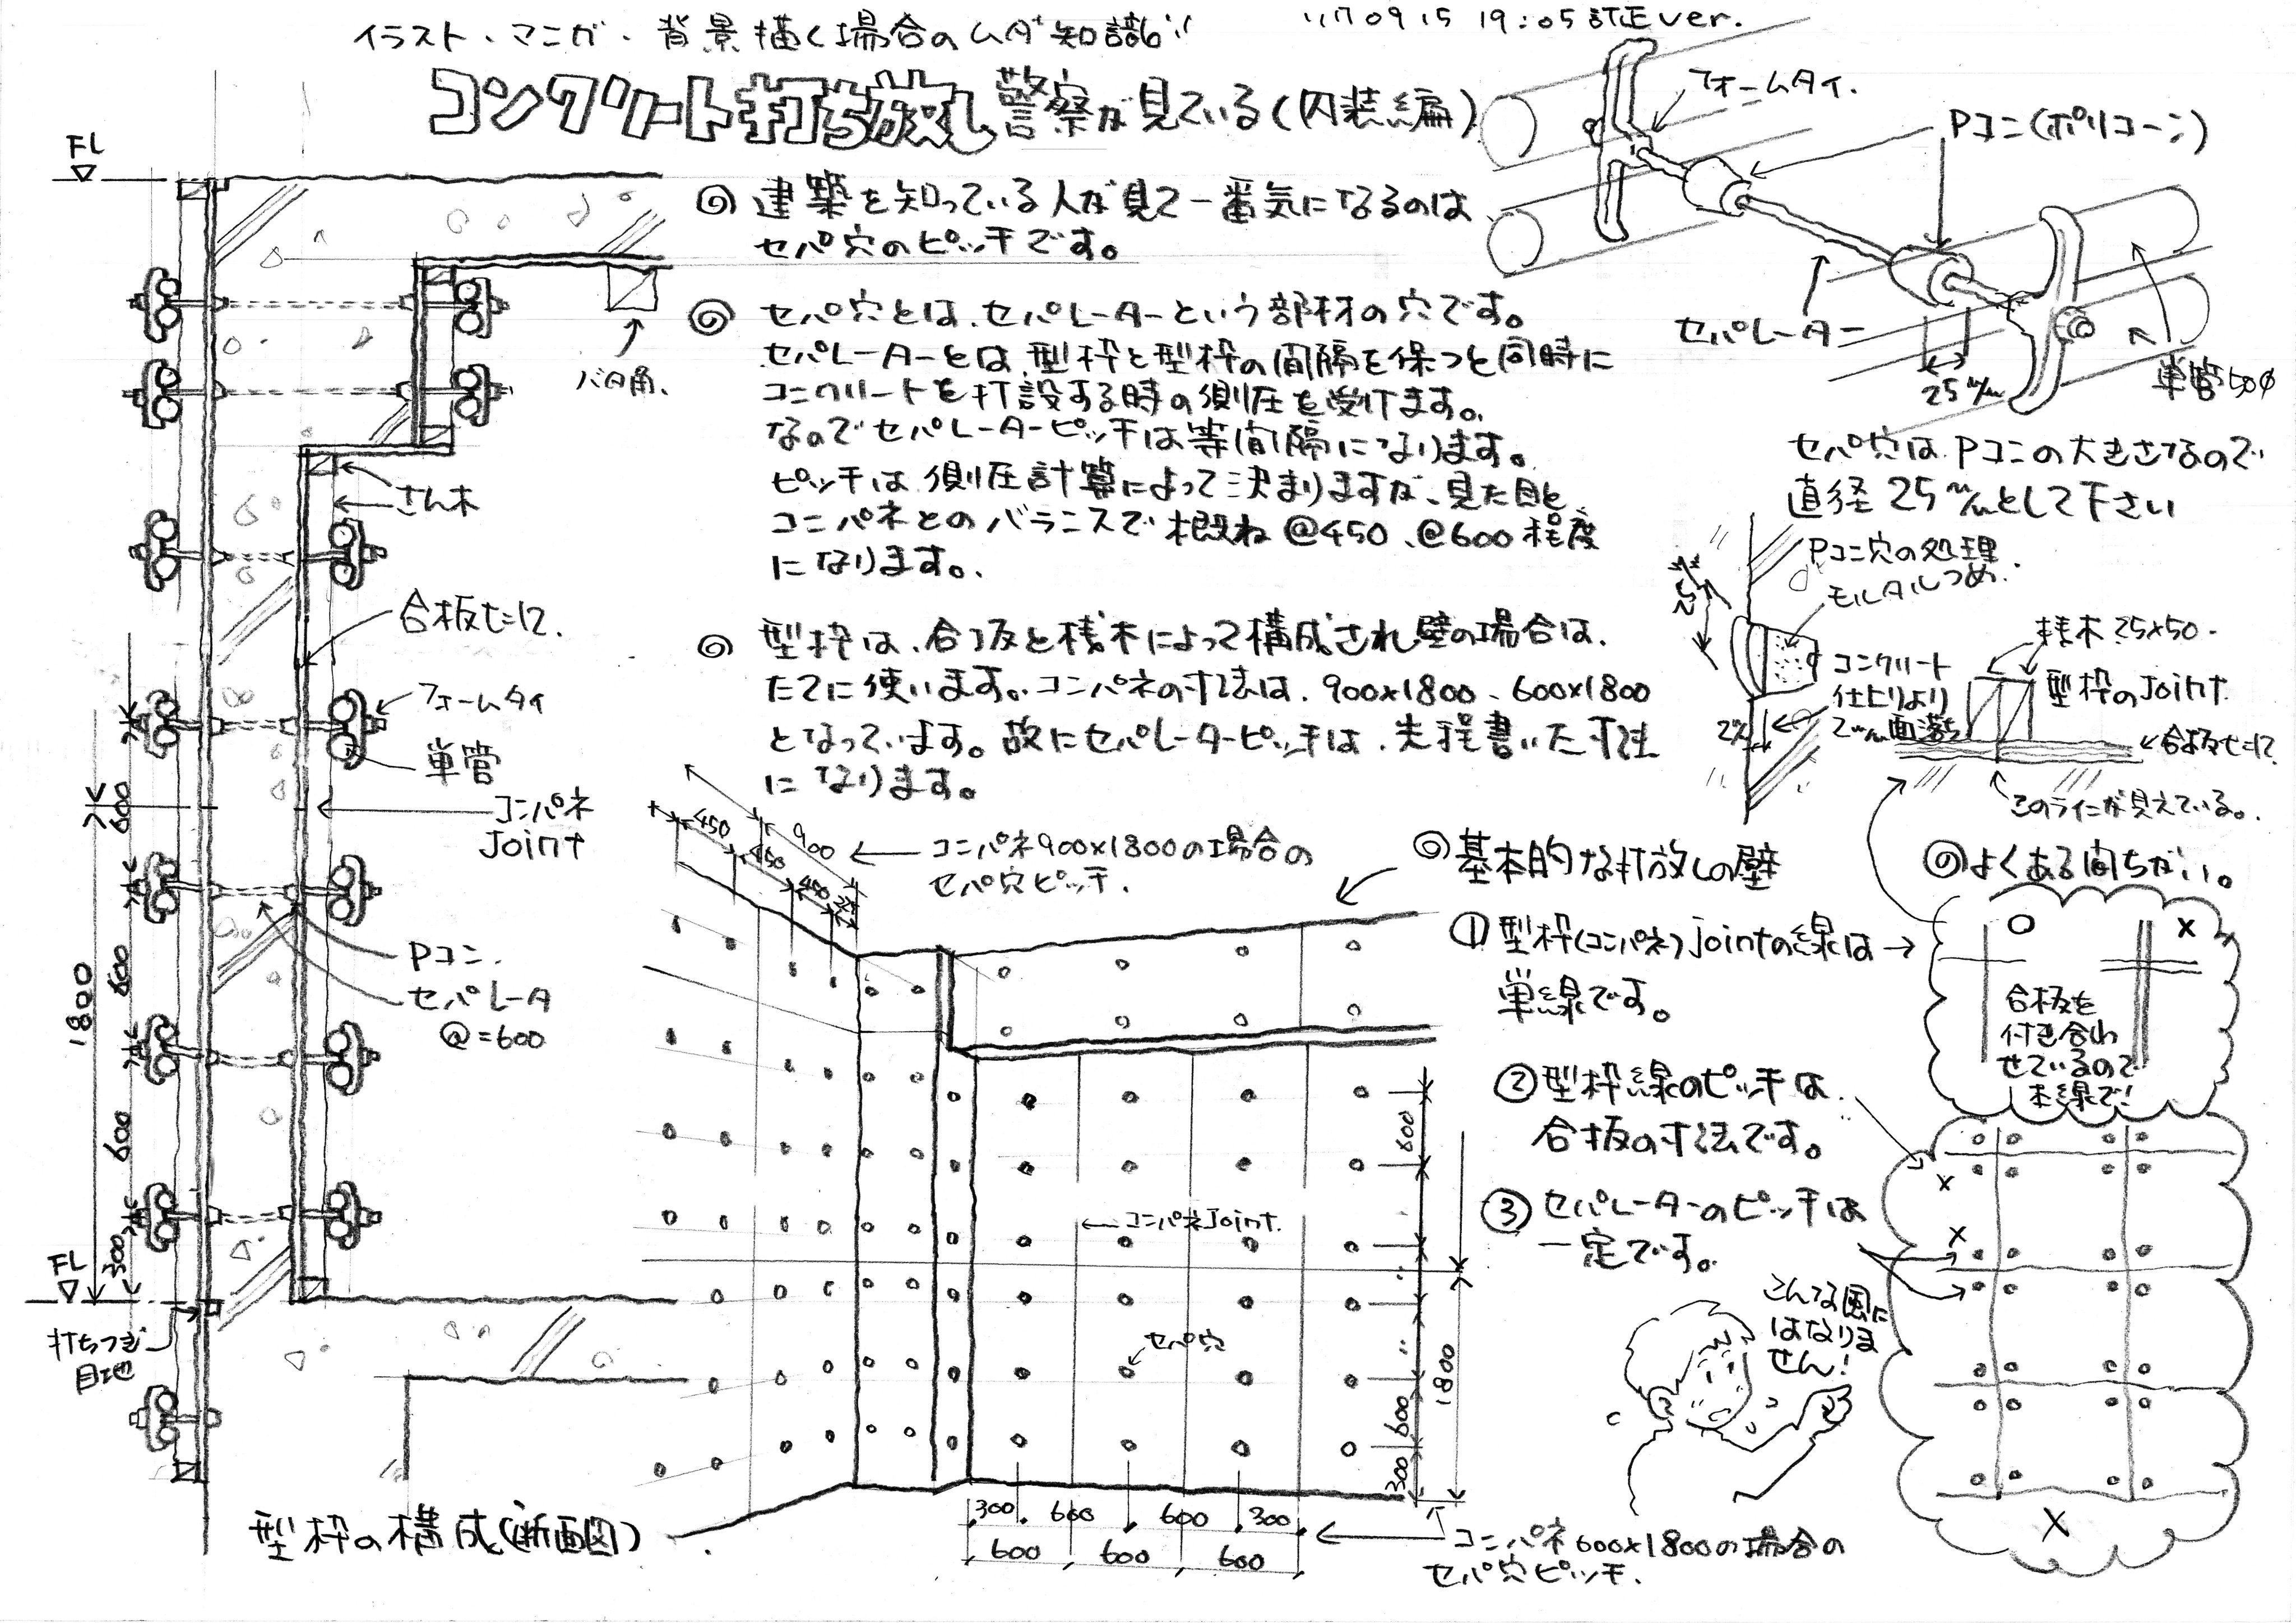 イラスト・マンガ・背景描く場合のムダ知識
'17 09 15 19:05 訂正ver.
コンクリート打ち放し警察が見ている(内装編)
◎ 建築を知っている人が見て一番気になるのは
セパ穴のピッチです。
◎ セパ穴とは、セパレーターという部材の穴です。
セパレーターとは、型枠と型枠の間隔を保つと同時に
コンクリートを打設する時の側圧を受けます。
なのでセパレーターピッチは等間隔になります。
ピッチは側圧計算によって決まりますが、見た目と
コンパネとのバランスで概ね@450、@600程度
になります。
◎ 型枠は、合板と桟木によって構成され壁の場合は、
たてに使います。コンパネの寸法は、900×1800、600×1800
となっています。故にセパレーターピッチは、先程書いた寸法
になります。
フォームタイ.
Pコン(ポリコーン)
セパレーター
25m/m
単管50φ
セパ穴はPコンの大きさなので
直径25m/mとして下さい
Pコン穴の処理
モルタルつめ.
コンクリート
仕上りより
2m/m面落ち
2m/m
桟木25×50.
型枠のJoint.
合板t=12
このラインが見えている。
FL
バタ角.
さん木
合板t=12.
フォームタイ
単管
コンパネ
Joint
Pコン.
セパレータ
@=600
600
600
600
300
1800
FL
打ちつぎ
目地
型枠の構成(断面図)
450
450
450
225
900
コンパネ900×1800の場合の
セパ穴ピッチ.
コンパネJoint.
セパ穴
600
〃
〃
600
300
1800
300 600 600 300
600 600 600
コンパネ600×1800の場合の
セパ穴ピッチ.
◎基本的な打放しの壁
①型枠(コンパネ)jointの線は→
単線です。
②型枠線のピッチは
合板の寸法です。
③セパレーターのピッチは
一定です。
◎よくある間ちがい。
○ ×
合板を
付き合わ
せているので
本線で!
×
×
×
こんな風に
はなりま
せん!